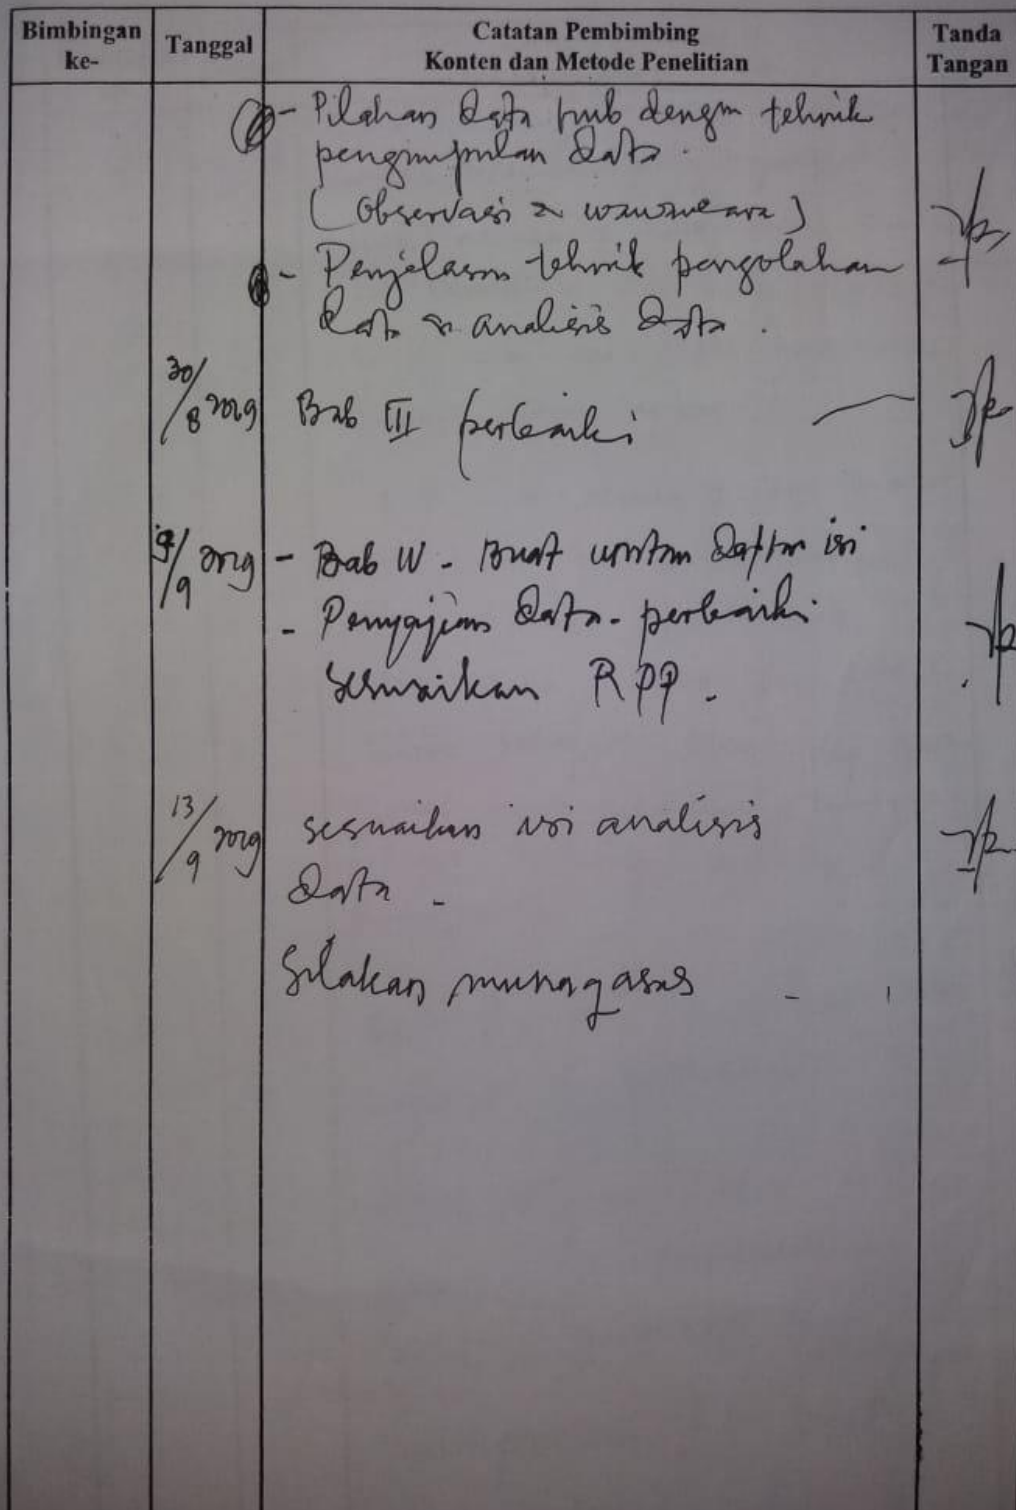 Bimbingan ke-
Tanggal
Catatan Pembimbing
Konten dan Metode Penelitian
Tanda Tangan
- Pilahan data hub dengan tehnik
pengumpulan data.
(Observasi & wawancara)
- Penjelasan tehnik pengolahan
data & analisis data.
30/8 2019 Bab III perbaiki
9/9 2019 - Bab IV - Buat urutan daftar isi
- Penyajian data - perbaiki
sesuaikan RPP.
13/9 2019 sesuaikan isi analisis
data -
Silakan munaqasas -